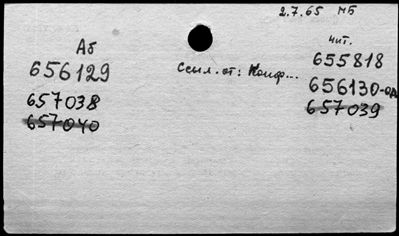 2.7.65 МБ
Аб
656129
657038
657040
Ссыл. от: Конф...
чит.
655818
656130-од
657039